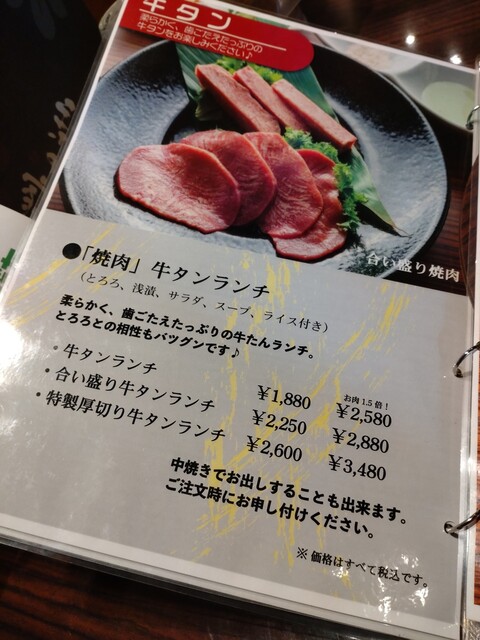 牛タン
柔らかく、歯ごたえたっぷりの
牛タンをお楽しみください♪
合い盛り焼肉
●「焼肉」牛タンランチ
（とろろ、浅漬、サラダ、スープ、ライス付き）
柔らかく、歯ごたえたっぷりの牛たんランチ。
とろろとの相性もバツグンです♪
お肉1.5倍！
・牛タンランチ ¥1,880 ¥2,580
・合い盛り牛タンランチ ¥2,250 ¥2,880
・特製厚切り牛タンランチ ¥2,600 ¥3,480
中焼きでお出しすることも出来ます。
ご注文時にお申し付けください。
※価格はすべて税込です。